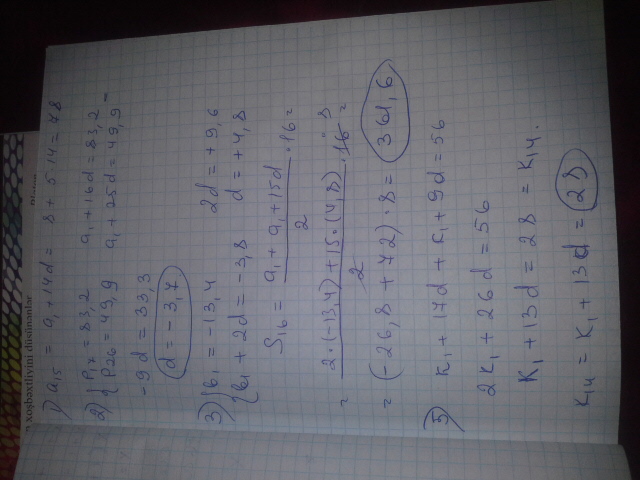 n xoşbəxtliyini düşünənlər
1) a₁₅ = a₁ + 14d = 8 + 5·14 = 78
2) { P₁₇ = 83,2 a₁ + 16d = 83,2
P₂₆ = 49,9 a₁ + 25d = 49,9 -
-9d = 33,3
d = -3,7
3) { b₁ = -13,4 2d = +9,6
b₁ + 2d = -3,8 d = +4,8
S₁₆ = (a₁ + a₁ + 15d)/2 · 16 =
= (2·(-13,4) + 15·(4,8))/2 · 16 8 =
= (-26,8 + 72) · 8 = 361,6
5) K₁ + 17d + K₁ + 9d = 56
2K₁ + 26d = 56
K₁ + 13d = 28 = K₁₄.
K₁₄ = K₁ + 13d = 28